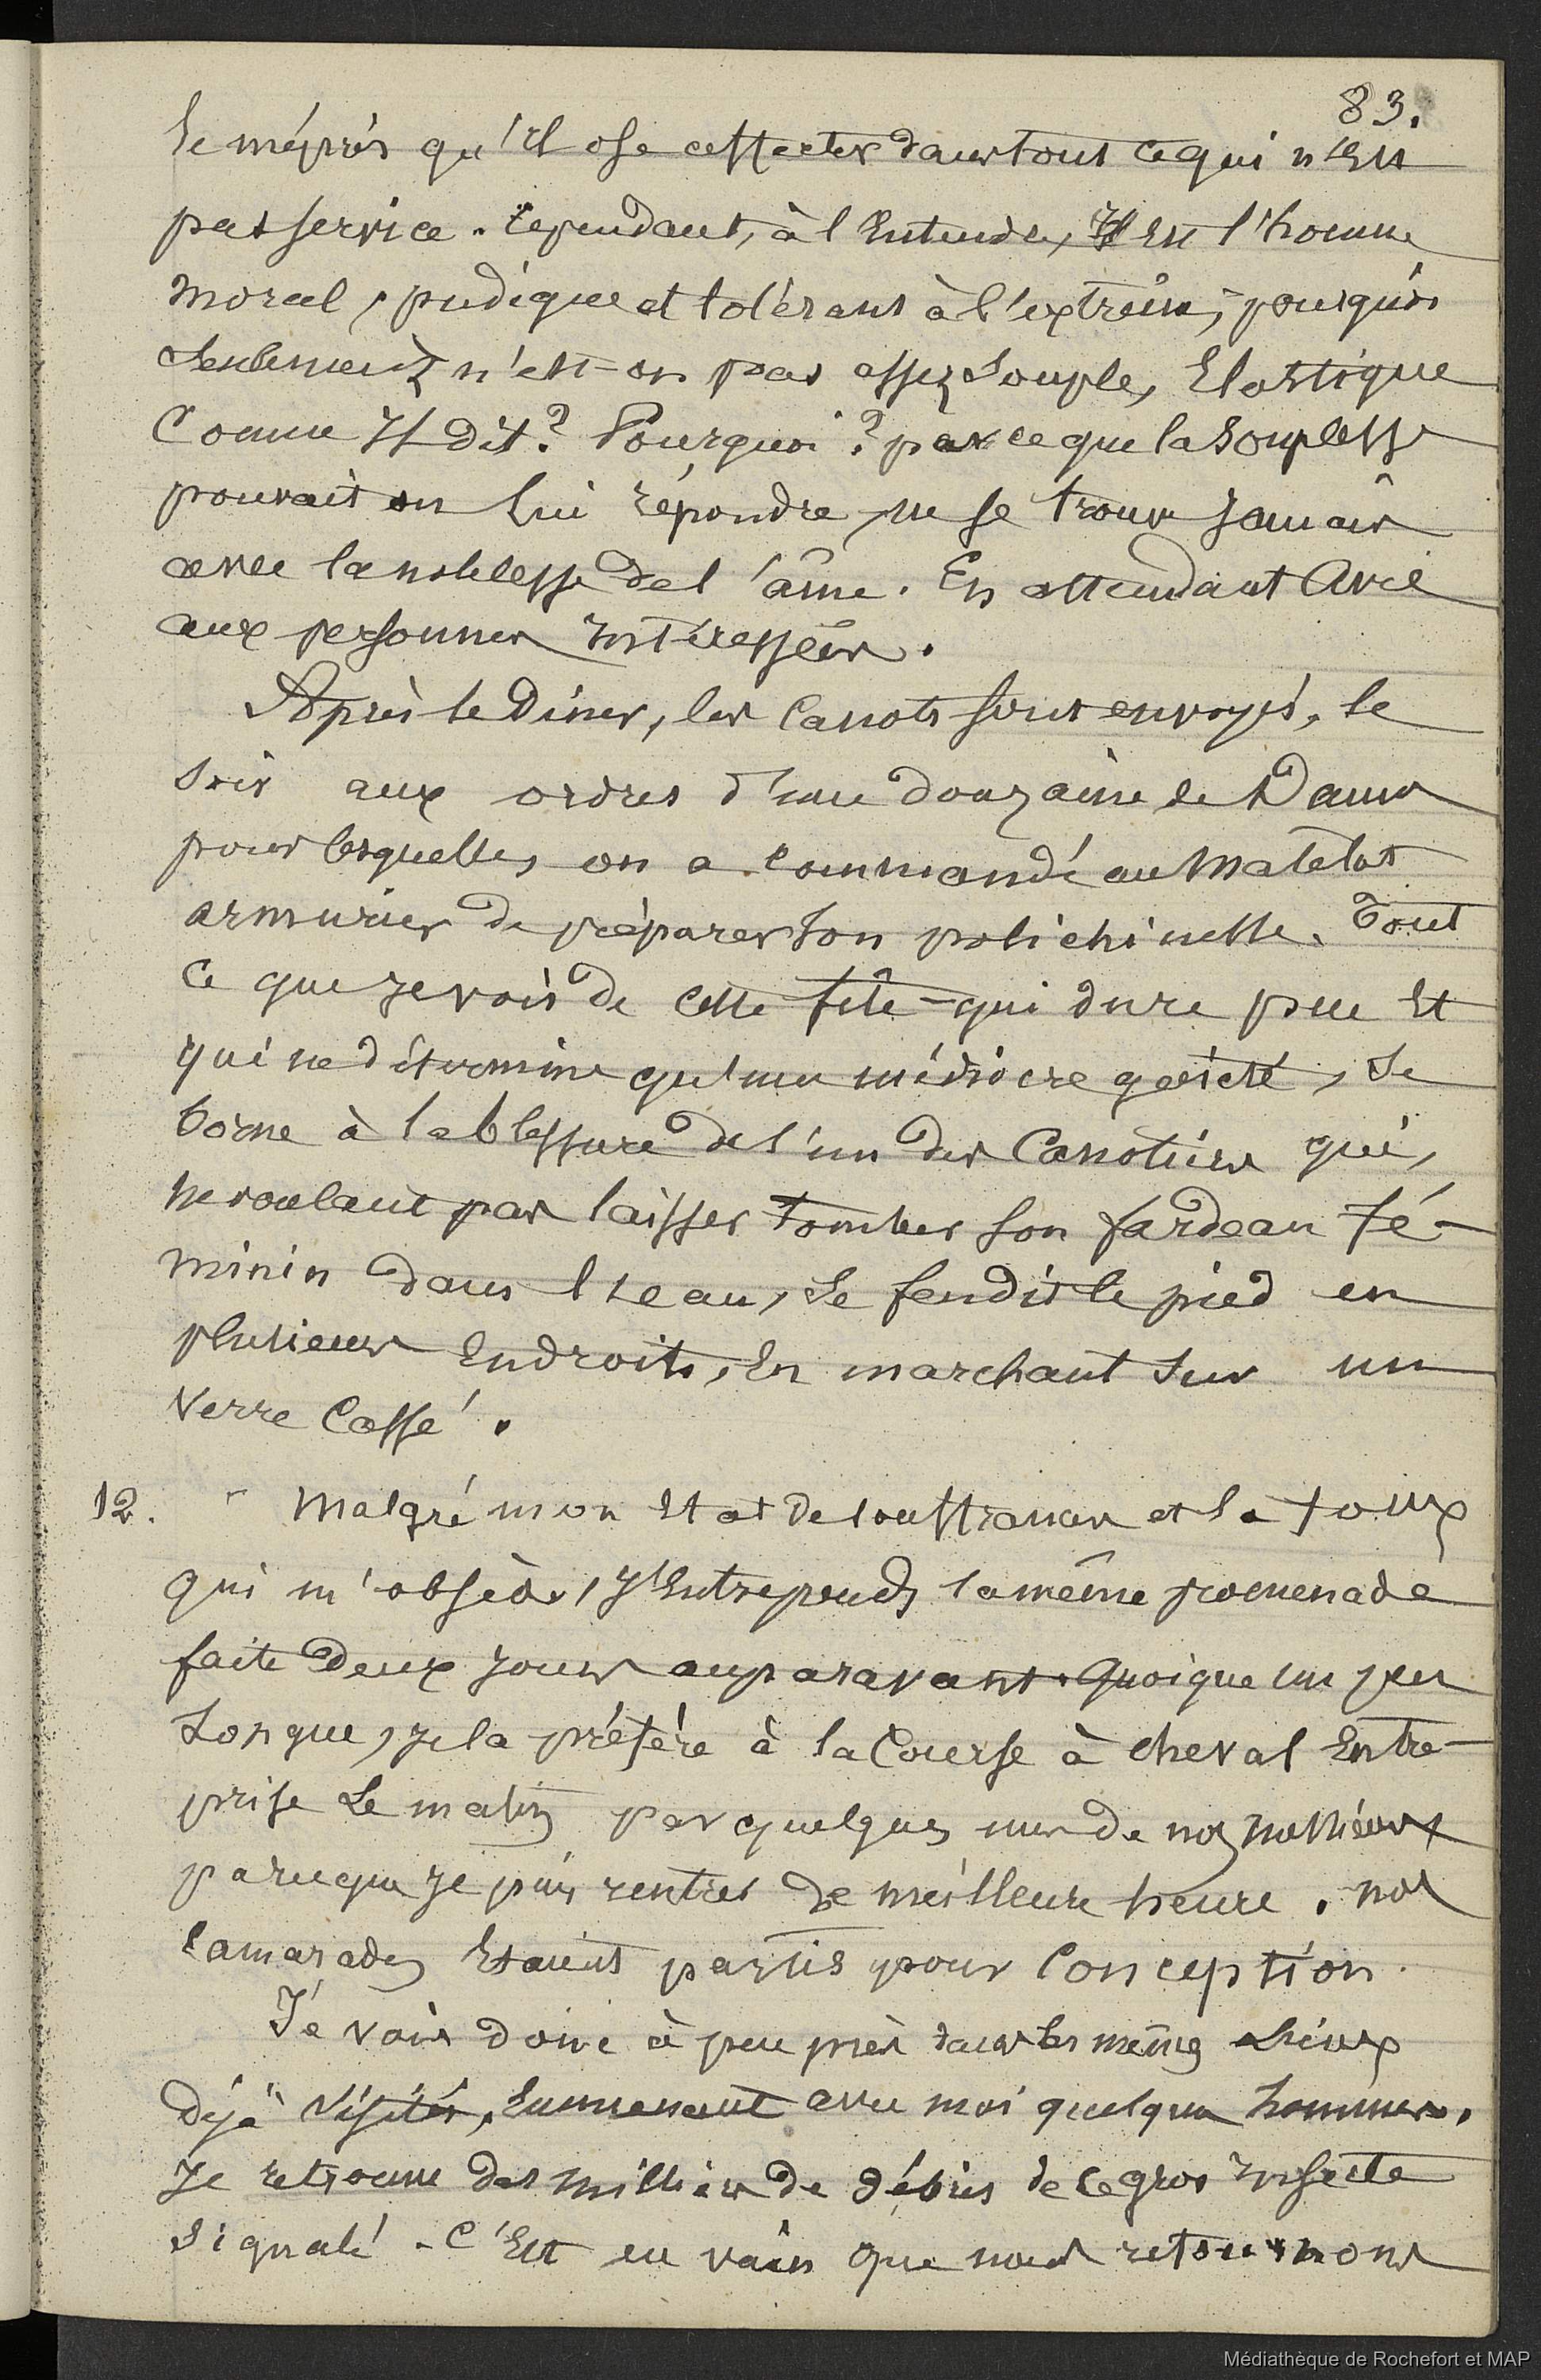 83.
le mépris qu'il ose affecter dans tout ce qui n'est
pas service. Cependant, à l'entendre, Il est l'homme
moral, pudique et tolérant à l'extrême; pourquoi
seulement n'est-on pas assez souple, Elastique
Comme Il dit? Pourquoi? parceque la souplesse
pouvait on lui répondre, ne se trouve jamais
avec la noblesse de l'âme. En attendant Avis
aux personnes Intéressées.
Après le Dîner, les Canots sont envoyés, le
soir aux ordres d'une douzaine de Dames
pour lesquelles on a commandé au Matelot
armurier de préparer son polichinelle. Tout
ce que je vois de cette fête - qui dure peu Et
qui ne détermine qu'une médiocre gaieté, se
borne à la blessure de l'un des Canotiers qui,
ne voulant pas laisser tomber son fardeau fé-
minin dans l'eau, se fendit le pied en
plusieurs Endroits, En marchant sur un
verre Cassé.
12. " Malgré mon Etat de souffrances et la toux
qui m'obsède, J'Entreprends la même promenade
faite deux jours auparavant. Quoique un peu
Longue, je la préfère à la Course à cheval Entre-
prise Le matin par quelques uns de nos Messieurs
parceque je puis rentrer de meilleure heure. nos
camarades Etaient partis pour Conception.
Je vais donc à peu près dans les mêmes Lieux
déjà visités, Emmenant avec moi quelques hommes.
Je retrouve des milliers de débris de ce gros Insecte
signalé. C'Est en vain que nous retournons
Médiathèque de Rochefort et MAP